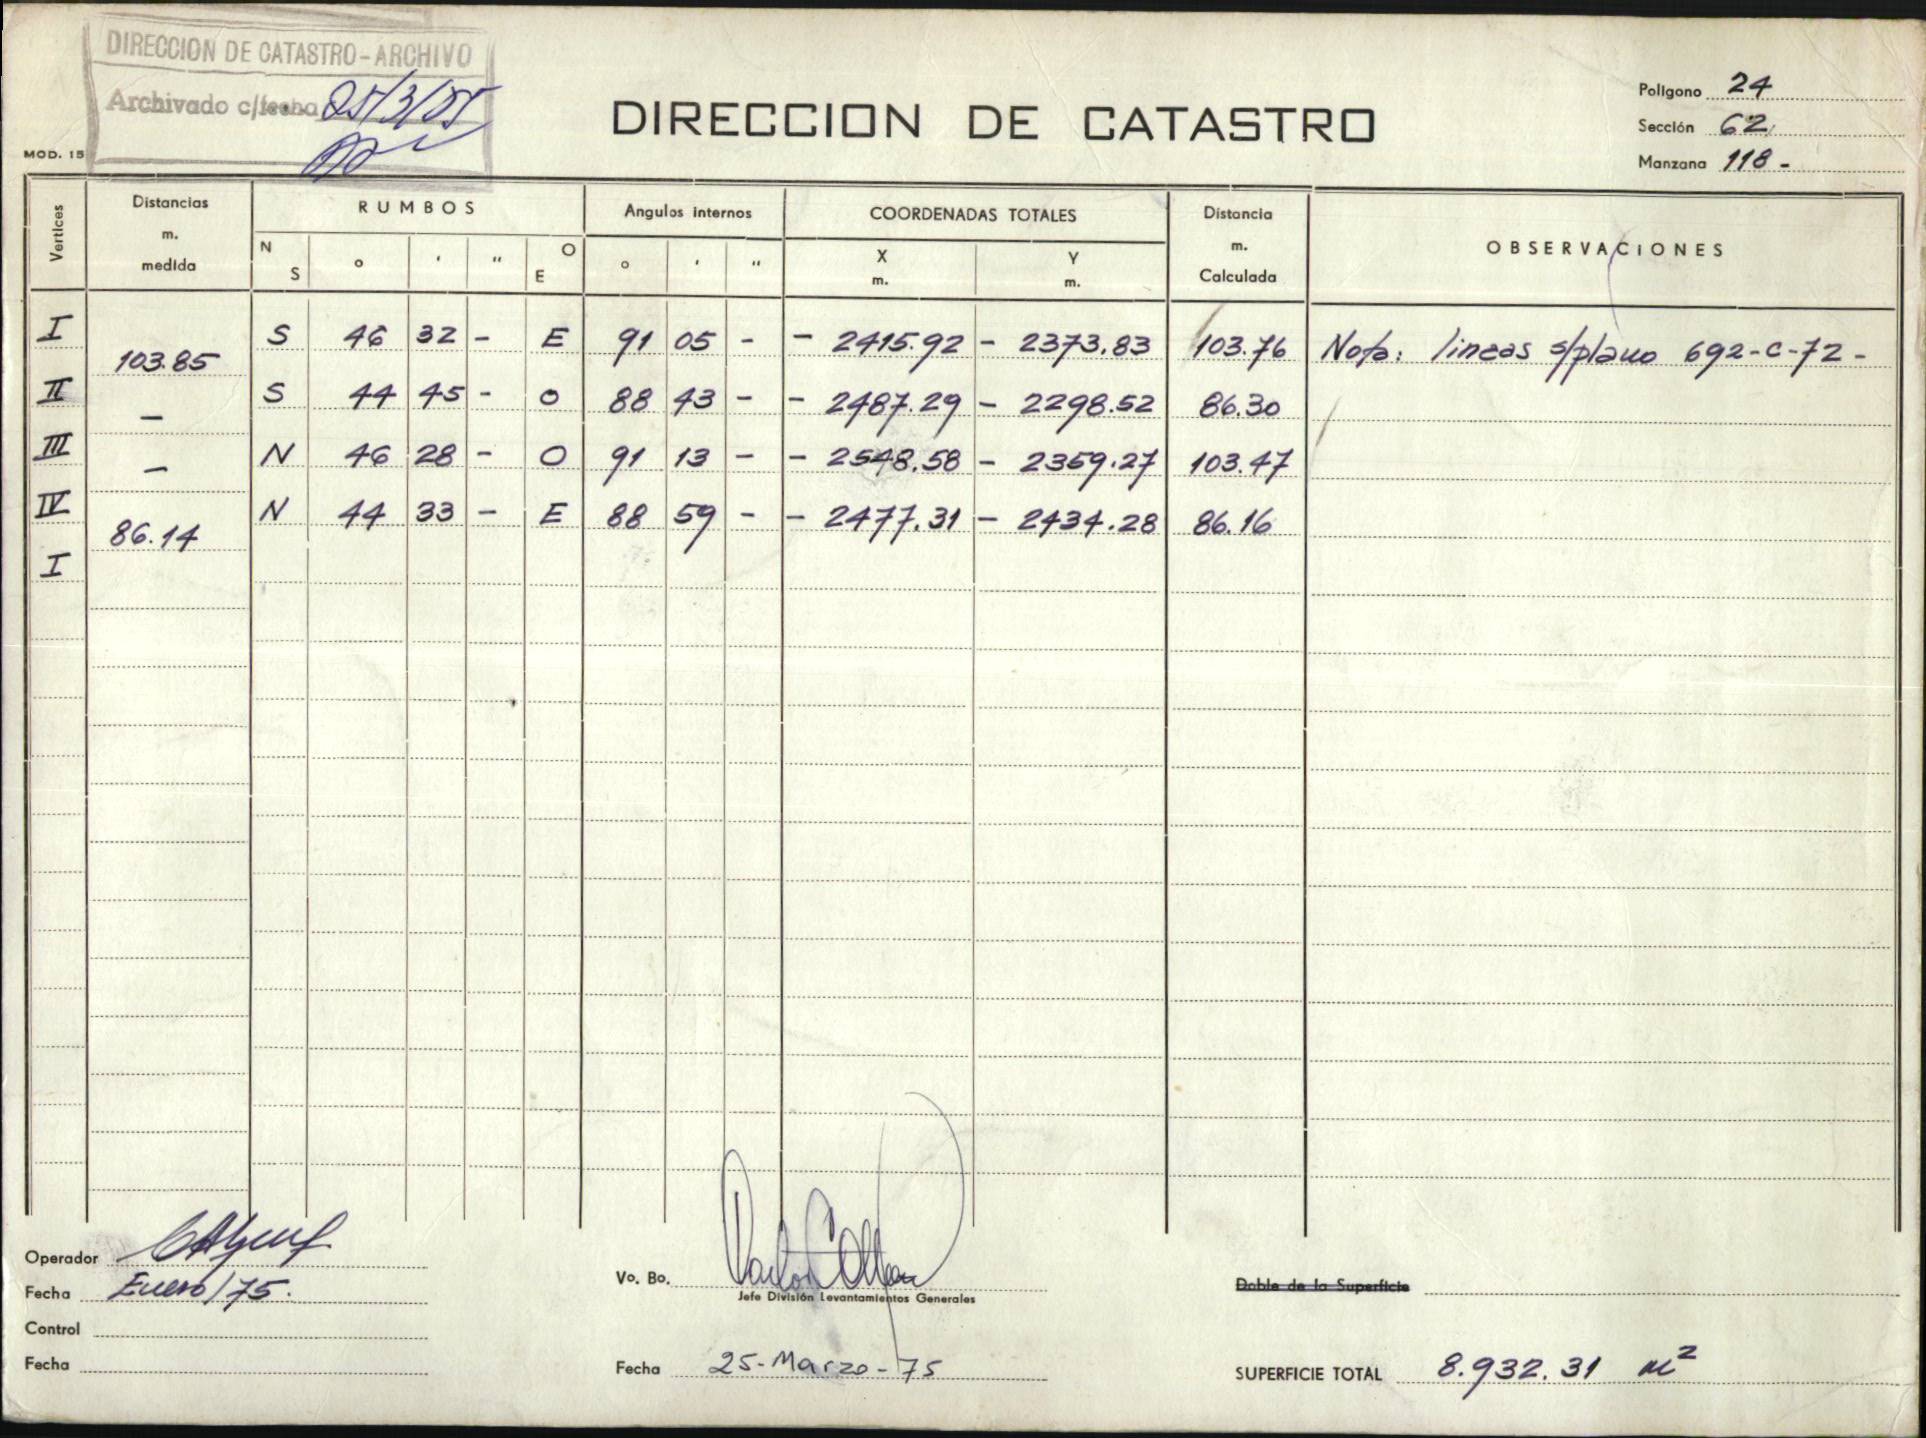 DIRECCION DE CATASTRO-ARCHIVO
Archivado c/fecha 25/3/75
DIRECCION DE CATASTRO
Polígono 24
Sección 62
Manzana 118 -
MOD. 15
Vertices Distancias m. medida RUMBOS Angulos internos COORDENADAS TOTALES Distancia m. Calculada OBSERVACIONES
N S ° ' " O E ° ' " X m. Y m.
I S 46 32 - E 91 05 - - 2415.92 - 2373.83 103.76 Nota: lineas s/plano 692-C-72 -
103.85
II S 44 45 - O 88 43 - - 2487.29 - 2298.52 86.30
—
III N 46 28 - O 91 13 - - 2548.58 - 2359.27 103.47
—
IV N 44 33 - E 88 59 - - 2477.31 - 2434.28 86.16
86.14
I
Operador
Fecha Enero/75.
Control
Fecha
Vo. Bo.
Jefe División Levantamientos Generales
Fecha 25-Marzo-75
Doble de la Superficie
SUPERFICIE TOTAL 8.932.31 m²